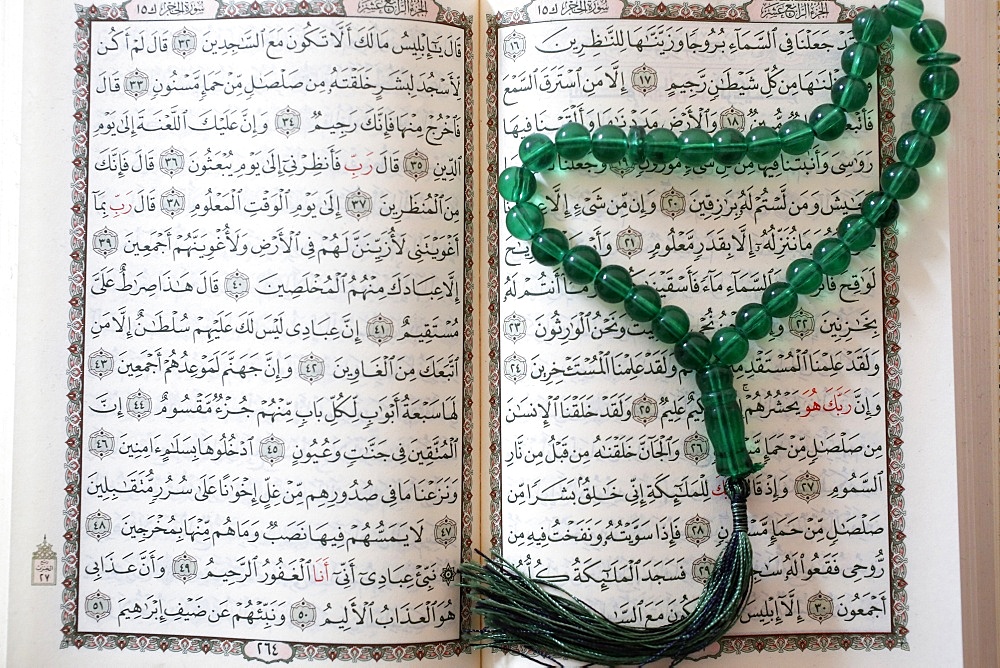 الجزء الرابع عشر سورة الحجر ١٥
جَعَلْنَا فِى ٱلسَّمَآءِ بُرُوجًا وَزَيَّنَّـٰهَا لِلنَّـٰظِرِينَ ١٦
مِن كُلِّ شَيْطَـٰنٍ رَّجِيمٍ ١٧ إِلَّا مَنِ ٱسْتَرَقَ ٱلسَّمْعَ
١٨ وَٱلْأَرْضَ مَدَدْنَـٰهَا وَأَلْقَيْنَا فِيهَا
رَوَٰسِىَ وَأَنۢبَتْنَا فِيهَا مِن كُلِّ شَىْءٍ مَّوْزُونٍ ١٩ وَجَعَلْنَا
وَمَن لَّسْتُمْ لَهُۥ بِرَٰزِقِينَ ٢٠ وَإِن مِّن شَىْءٍ إِلَّا
وَمَا نُنَزِّلُهُۥٓ إِلَّا بِقَدَرٍ مَّعْلُومٍ ٢١
لَوَٰقِحَ ٱلسَّمَآءِ مَآءً أَنتُمْ لَهُۥ
بِخَـٰزِنِينَ ٢٢ وَنَحْنُ ٱلْوَٰرِثُونَ ٢٣
وَلَقَدْ عَلِمْنَا ٱلْمُسْتَقْدِمِينَ وَلَقَدْ عَلِمْنَا ٱلْمُسْتَـْٔخِرِينَ ٢٤
وَإِنَّ رَبَّكَ هُوَ يَحْشُرُهُمْ عَلِيمٌ ٢٥ وَلَقَدْ خَلَقْنَا ٱلْإِنسَـٰنَ
مِن صَلْصَـٰلٍ مِّنْ حَمَإٍ ٢٦ وَٱلْجَآنَّ خَلَقْنَـٰهُ مِن قَبْلُ مِن نَّارِ
ٱلسَّمُومِ ٢٧ وَإِذْ لِلْمَلَـٰٓئِكَةِ إِنِّى خَـٰلِقٌۢ بَشَرًا مِّن
صَلْصَـٰلٍ مِّنْ حَمَإٍ ٢٨ فَإِذَا سَوَّيْتُهُۥ وَنَفَخْتُ فِيهِ مِن
رُّوحِى فَقَعُوا۟ لَهُۥ ٢٩ فَسَجَدَ ٱلْمَلَـٰٓئِكَةُ كُلُّهُمْ
أَجْمَعُونَ ٣٠ إِلَّآ إِبْلِيسَ يَكُونَ مَعَ
الجزء الرابع عشر سورة الحجر ١٥
قَالَ يَـٰٓإِبْلِيسُ مَا لَكَ أَلَّا تَكُونَ مَعَ ٱلسَّـٰجِدِينَ ٣٢ قَالَ لَمْ أَكُن
لِّأَسْجُدَ لِبَشَرٍ خَلَقْتَهُۥ مِن صَلْصَـٰلٍ مِّنْ حَمَإٍ مَّسْنُونٍ ٣٣ قَالَ
فَٱخْرُجْ مِنْهَا فَإِنَّكَ رَجِيمٌ ٣٤ وَإِنَّ عَلَيْكَ ٱللَّعْنَةَ إِلَىٰ يَوْمِ
ٱلدِّينِ ٣٥ قَالَ رَبِّ فَأَنظِرْنِىٓ إِلَىٰ يَوْمِ يُبْعَثُونَ ٣٦ قَالَ فَإِنَّكَ
مِنَ ٱلْمُنظَرِينَ ٣٧ إِلَىٰ يَوْمِ ٱلْوَقْتِ ٱلْمَعْلُومِ ٣٨ قَالَ رَبِّ بِمَآ
أَغْوَيْتَنِى لَأُزَيِّنَنَّ لَهُمْ فِى ٱلْأَرْضِ وَلَأُغْوِيَنَّهُمْ أَجْمَعِينَ ٣٩
إِلَّا عِبَادَكَ مِنْهُمُ ٱلْمُخْلَصِينَ ٤٠ قَالَ هَـٰذَا صِرَٰطٌ عَلَىَّ
مُسْتَقِيمٌ ٤١ إِنَّ عِبَادِى لَيْسَ لَكَ عَلَيْهِمْ سُلْطَـٰنٌ إِلَّا مَنِ
ٱتَّبَعَكَ مِنَ ٱلْغَاوِينَ ٤٢ وَإِنَّ جَهَنَّمَ لَمَوْعِدُهُمْ أَجْمَعِينَ ٤٣
لَهَا سَبْعَةُ أَبْوَٰبٍ لِّكُلِّ بَابٍ مِّنْهُمْ جُزْءٌ مَّقْسُومٌ ٤٤ إِنَّ
ٱلْمُتَّقِينَ فِى جَنَّـٰتٍ وَعُيُونٍ ٤٥ ٱدْخُلُوهَا بِسَلَـٰمٍ ءَامِنِينَ ٤٦
وَنَزَعْنَا مَا فِى صُدُورِهِم مِّنْ غِلٍّ إِخْوَٰنًا عَلَىٰ سُرُرٍ مُّتَقَـٰبِلِينَ
٤٧ لَا يَمَسُّهُمْ فِيهَا نَصَبٌ وَمَا هُم مِّنْهَا بِمُخْرَجِينَ ٤٨
۞ نَبِّئْ عِبَادِىٓ أَنِّىٓ أَنَا ٱلْغَفُورُ ٱلرَّحِيمُ ٤٩ وَأَنَّ عَذَابِى
هُوَ ٱلْعَذَابُ ٱلْأَلِيمُ ٥٠ وَنَبِّئْهُمْ عَن ضَيْفِ إِبْرَٰهِيمَ ٥١
٢٧
٢٦٤